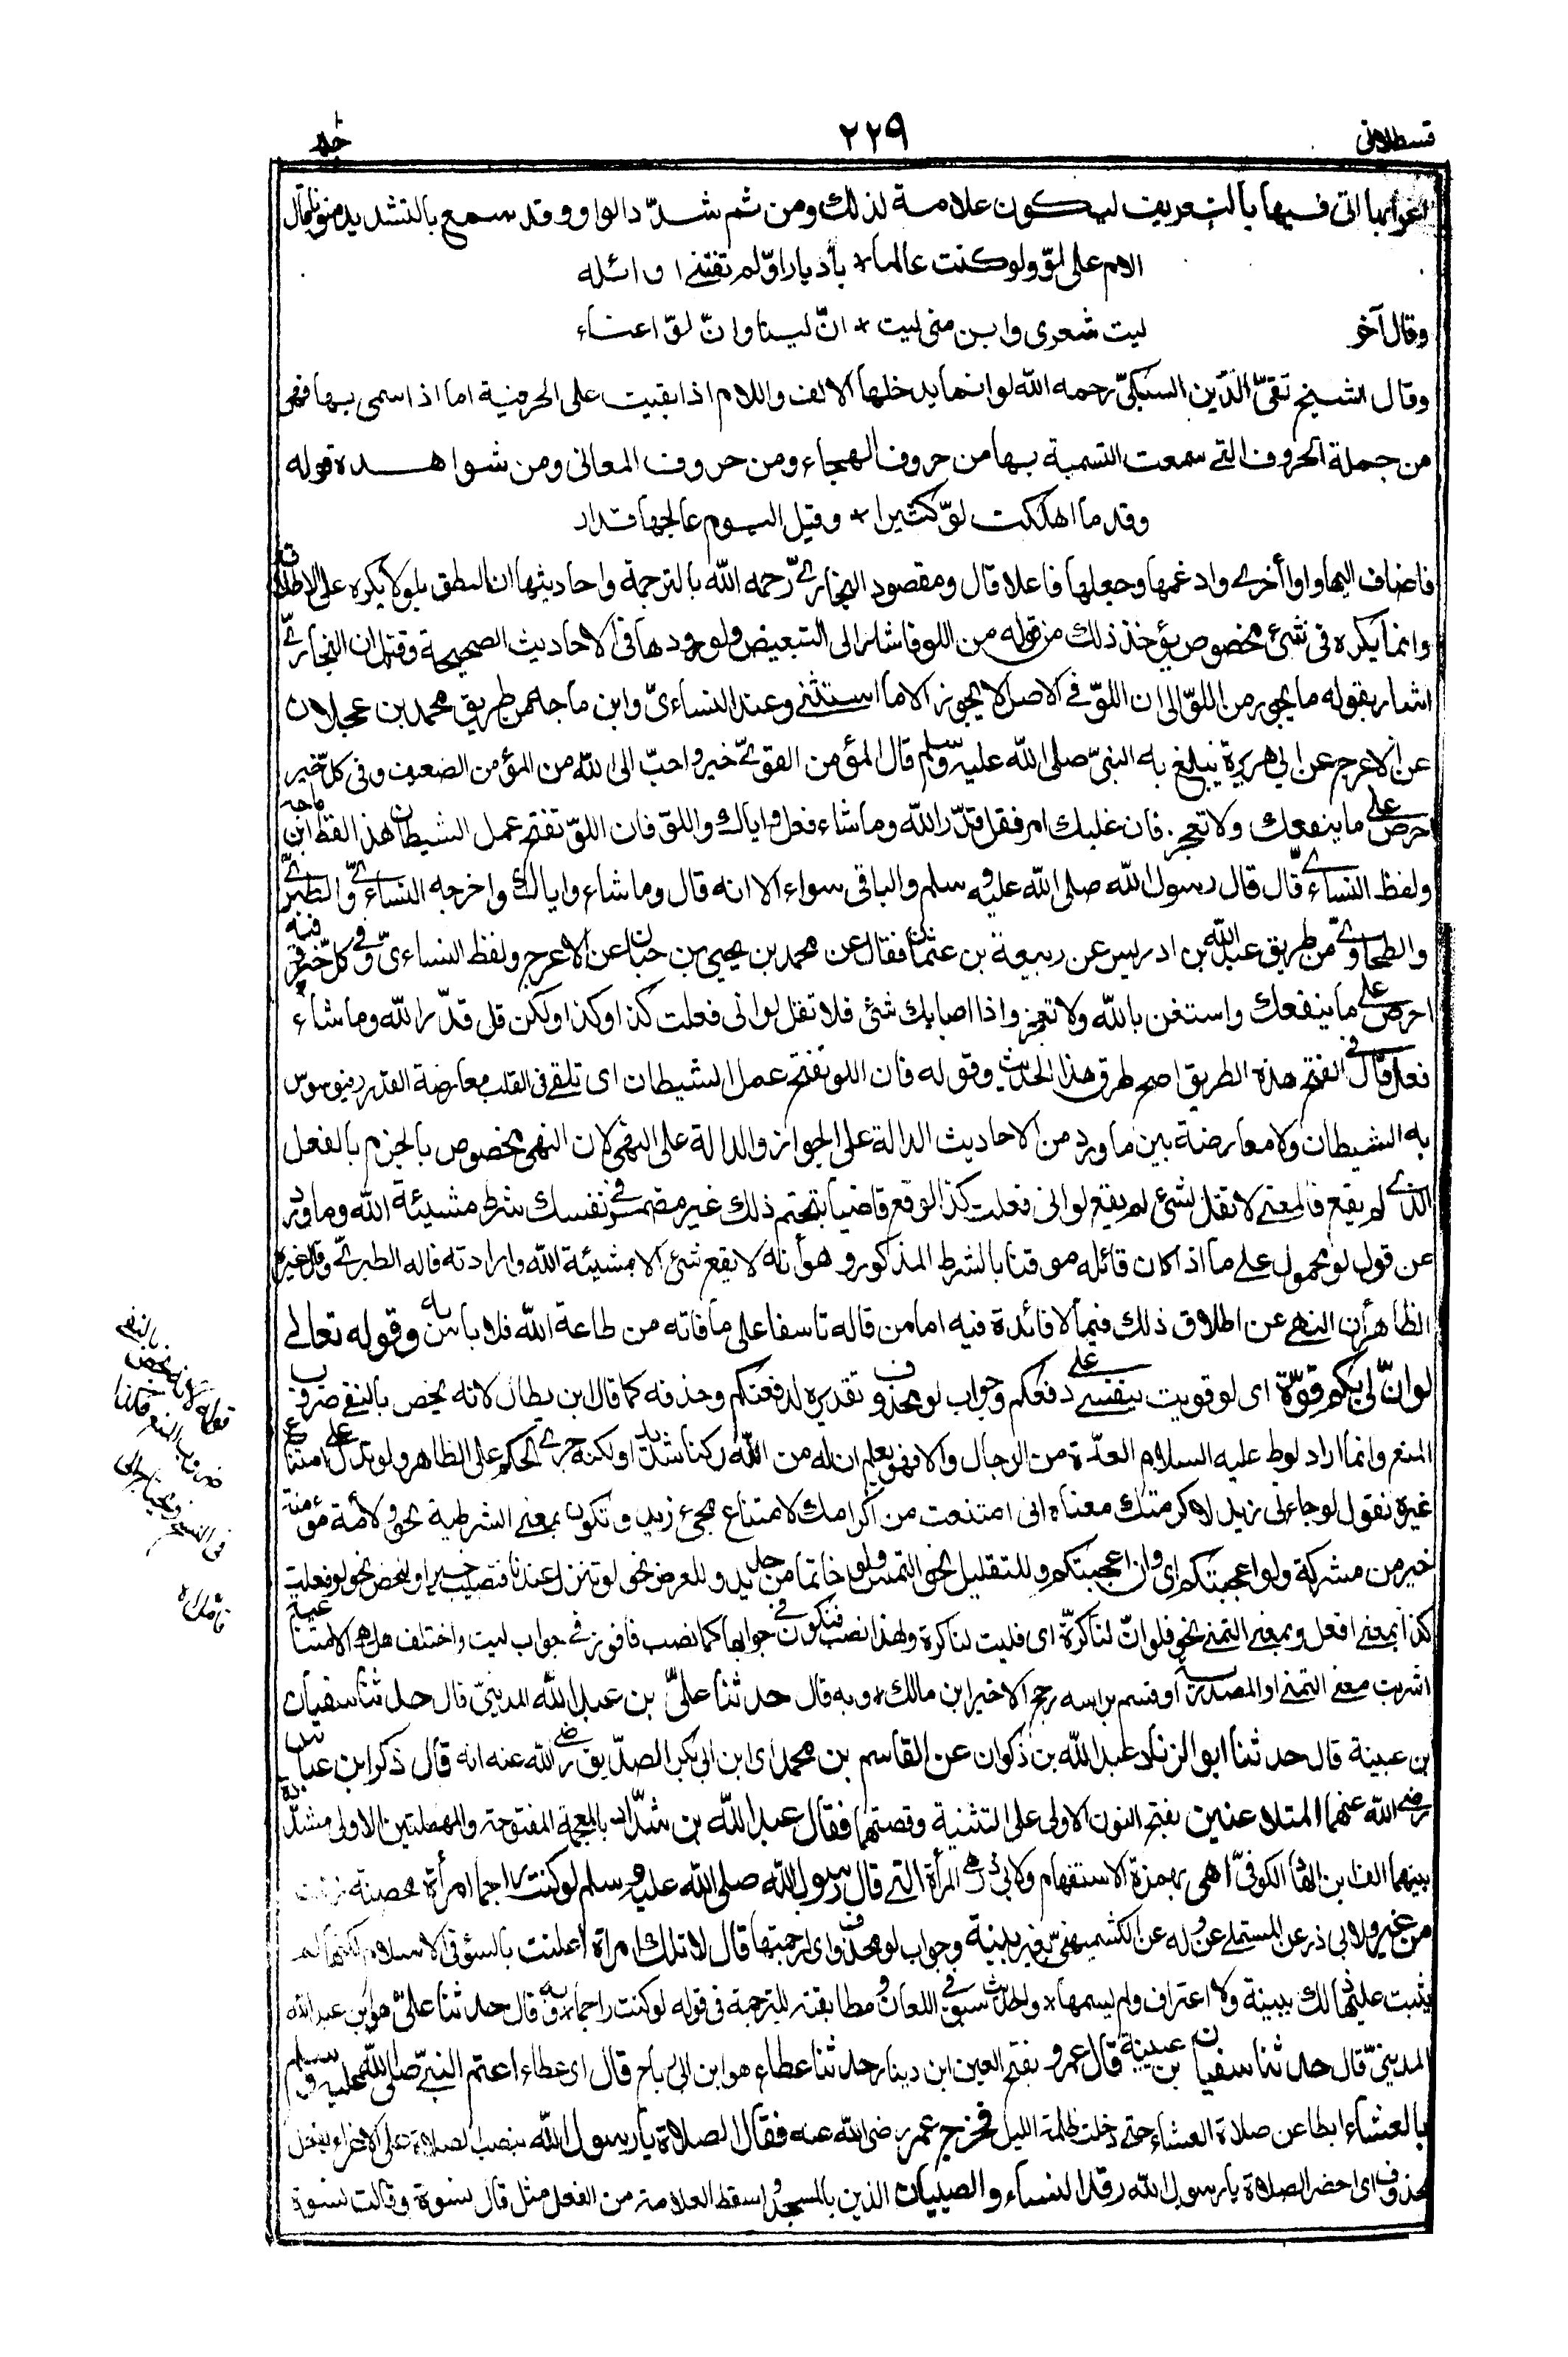 قسطلانى
٢٢٩
اعرابها اتى فيها بالتعريف ليكون علامة لذلك ومن ثم شدّد الواو وقد سمع بالتشديد منونا قال
الام على لوّ ولو كنت عالما * بأذبار لوّ لم تفتنى اوائله
وقال آخر
ليت شعرى واين منى ليت * انّ ليتا وانّ لوّا عناء
وقال الشيخ تقىّ الدّين السبكىّ رحمه الله لو انما يدخلها الالف واللام اذا بقيت على الحرفية اما اذا سمى بها فهى
من جملة الحروف التى سمعت التسمية بها من حروف الهجاء ومن حروف المعانى ومن شواهده قوله
وقدما اهلكت لوّ كثيرا * وقبل اليوم عالجها قدار
فاضاف اليها واوا أخرى وادغمها وجعلها فاعلا قال ومقصود البخارىّ رحمه الله بالترجمة واحاديثها ان النطق بلو لا يكره على الاطلاق
وانما يكره فى شئ مخصوص يؤخذ ذلك من قوله من اللو فاشار الى التبعيض ولورودها فى الاحاديث الصحيحة وقيل ان البخارىّ
اشار بقوله ما يجوز من اللوّ الى ان اللوّ فى الاصل لا يجوز الا ما استثنى وعند النساءىّ وابن ماجه من طريق محمد بن عجلان
عن الاعرج عن ابى هريرة يبلغ به النبىّ صلى الله عليه وسلم قال المؤمن القوىّ خير واحبّ الى الله من المؤمن الضعيف وفى كلّ خير
احرص على ما ينفعك ولا تعجز فان غلبك امر فقل قدّر الله وما شاء فعل واياك واللوّ فان اللوّ تفتح عمل الشيطان هذا لفظ ابن ماجه
ولفظ النساءىّ قال قال رسول الله صلى الله عليه وسلم والباقى سواء الا انه قال وما شاء واياك واخرجه النساءىّ والطبرىّ
والطحاوىّ من طريق عبد الله بن ادريس عن ربيعة بن عثمان فقال عن محمد بن يحيى بن حبان عن الاعرج ولفظ النساءىّ وفى كلّ خير وفيه
احرص على ما ينفعك واستعن بالله ولا تعجز واذا اصابك شئ فلا تقل لو انى فعلت كذا وكذا ولكن قل قدّر الله وما شاء
فعل قال فى الفتح هذه الطريق اصح طرق هذا الحديث وقوله فان اللو تفتح عمل الشيطان اى تلقى فى القلب معارضة القدر فيوسوس
به الشيطان ولا معارضة بين ما ورد من الاحاديث الدالة على الجواز والدالة على النهى لان النهى مخصوص بالجزم بالفعل
الذى لم يقع فالمعنى لا تقل لشئ لم يقع لو انى فعلت كذا لوقع قاضيا بتحتم ذلك غير مضمر فى نفسك شرط مشيئة الله وما ورد
عن قول لو محمول على ما اذا كان قائله موقنا بالشرط المذكور وهو أنه لا يقع شئ الا بمشيئة الله وارادته قاله الطبرىّ وقال غيره
الظاهر أن النهى عن اطلاق ذلك فيما لا فائدة فيه اما من قاله تاسفا على ما فاته من طاعة الله فلا باس به وقوله تعالى
لو انّ لى بكم قوّة اى لو قويت بنفسى على دفعكم وجواب لو محذوف تقديره لدفعتكم وحذفه كما قال ابن بطال لانه يخص بالنفى ضروب
المنع وانما اراد لوط عليه السلام العدّة من الرجال والا فهو يعلم ان له من الله ركنا شديدا ولكنه جرى الحكم على الظاهر ولو تدل على امتناع
غيره تقول لو جاءنى زيد لاكرمتك معناه انى امتنعت من اكرامك لامتناع مجئ زيد وتكون بمعنى الشرطية نحو ولأمة مؤمنة
خير من مشركة ولو اعجبتكم اى وان اعجبتكم وللتقليل نحو التمس ولو خاتما من حديد وللعرض نحو لو تنزل عندنا فتصيب خيرا وللحض نحو لو فعلت
كذا بمعنى افعل وبمعنى التمنى نحو فلو انّ لنا كرّة اى فليت لنا كرة ولهذا نصب فنكون فى جوابها كما نصب فافوز فى جواب ليت واختلف هل هى الامتناعية
اشربت معنى التمنى او المصدرية أو قسم براسه رجح الاخير ابن مالك * وبه قال حدثنا علىّ بن عبد الله المدينىّ قال حدثنا سفيان
بن عيينة قال حدثنا ابو الزناد عبد الله بن ذكوان عن القاسم بن محمد اى ابن ابى بكر الصدّيق رضى الله عنه انه قال ذكر ابن عباس
رضى الله عنهما المتلاعنين بفتح النون الاولى على التثنية وقصتهما فقال عبد الله بن شدّاد بالمعجمة المفتوحة والمهملتين الاولى مشدّدة
بينهما الف ابن الهاد الكوفىّ اهى بهمزة الاستفهام ولابى ذر هى المرأة التى قال رسول الله صلى الله عليه وسلم لو كنت راجما امرأة محصنة زنت
من غير ولابى ذر عن المستملى عن وله عن الكشميهنىّ بغير بينة وجواب لو محذوف اى لرجمتها قال لا تلك امراة اعلنت بالسوء فى الاسلام لكنها لم
يثبت عليها ذلك ببينة ولا اعتراف ولم يسمها * والحديث سبق فى اللعان ومطابقته للترجمة فى قوله لو كنت راجما * وبه قال حدثنا علىّ هو ابن عبد الله
المدينىّ قال حدثنا سفيان بن عيينة قال عمرو بفتح العين ابن دينار حدثنا عطاء هو ابن ابى رباح قال اى عطاء اعتم النبىّ صلى الله عليه وسلم
بالعشاء ابطا عن صلاة العشاء حتى دخلت ظلمة الليل فخرج عمر رضى الله عنه فقال الصلاة يا رسول الله بنصب الصلاة على الاغراء بفعل
محذوف اى احضر الصلاة يا رسول الله رقد النساء والصبيان الذين بالمسجد واسقط العلامة من الفعل مثل قال نسوة وقالت نسوة
قوله لانه يخص بالنفى
ضروب المنع هكذا
فى النسخ